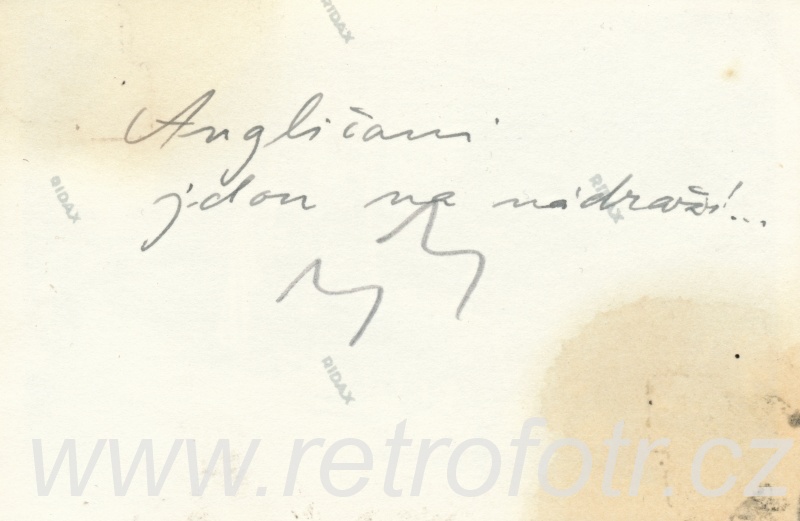 RIDAX
Angličani
RIDAX
RIDAX
jdou na nádraží!...
RIDAX
www.retrofotr.cz